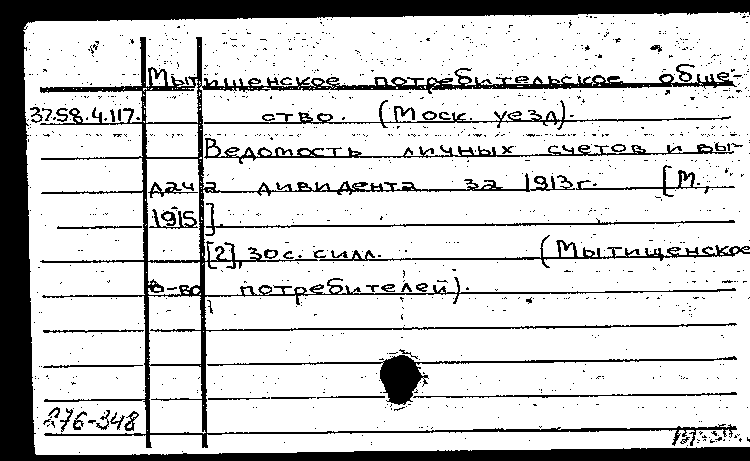 Мытищенское потребительское обще-
37.58.4.117. ство. (Моск. уезд).
Ведомость личных счетов и вы-
дача дивидента за 1913г. [М.,
1915].
[2], 30 с. силл. (Мытищенское
о-во потребителей).
276-348